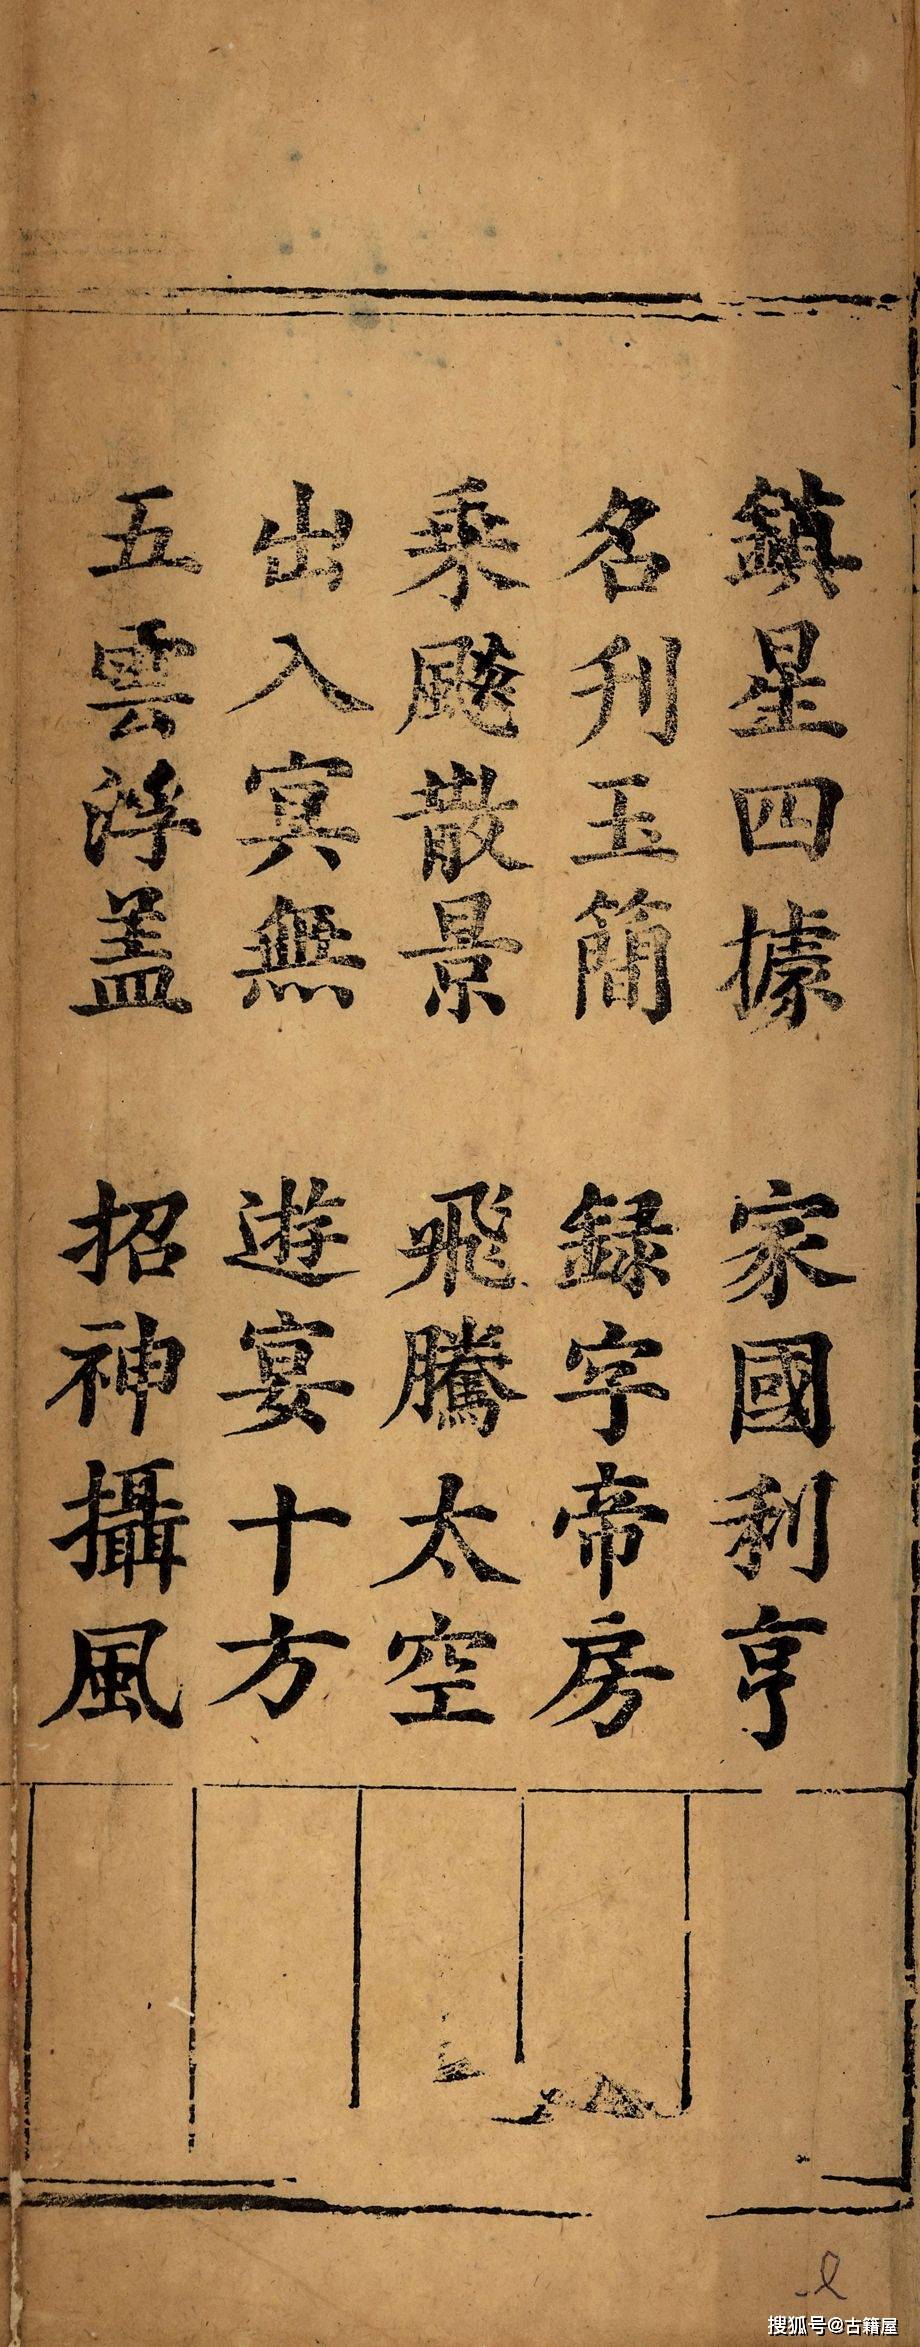 鎮星四據　家國利亨
名刋玉簡　録字帝房
乗飈散景　飛騰太空
出入冥無　遊宴十方
五雲浮蓋　招神攝風
搜狐号@古籍屋